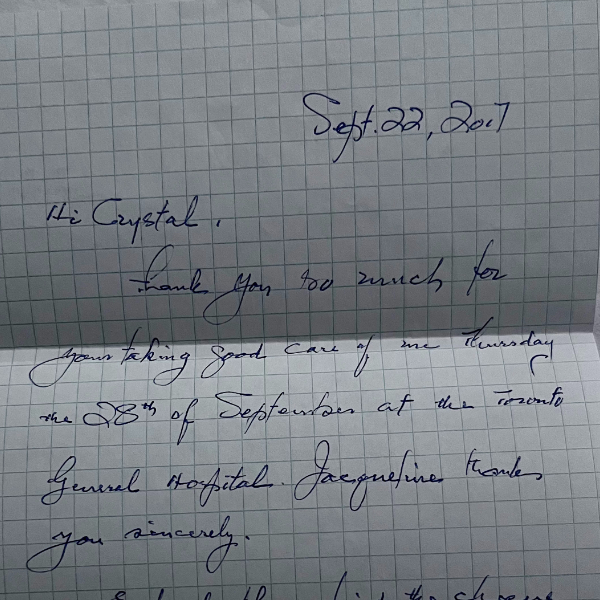 Sept. 22, 2017
Hi Crystal,
Thank you so much for
your taking good care of me Thursday
the 28th of September at the Toronto
General Hospital. Jacqueline thanks
you sincerely.